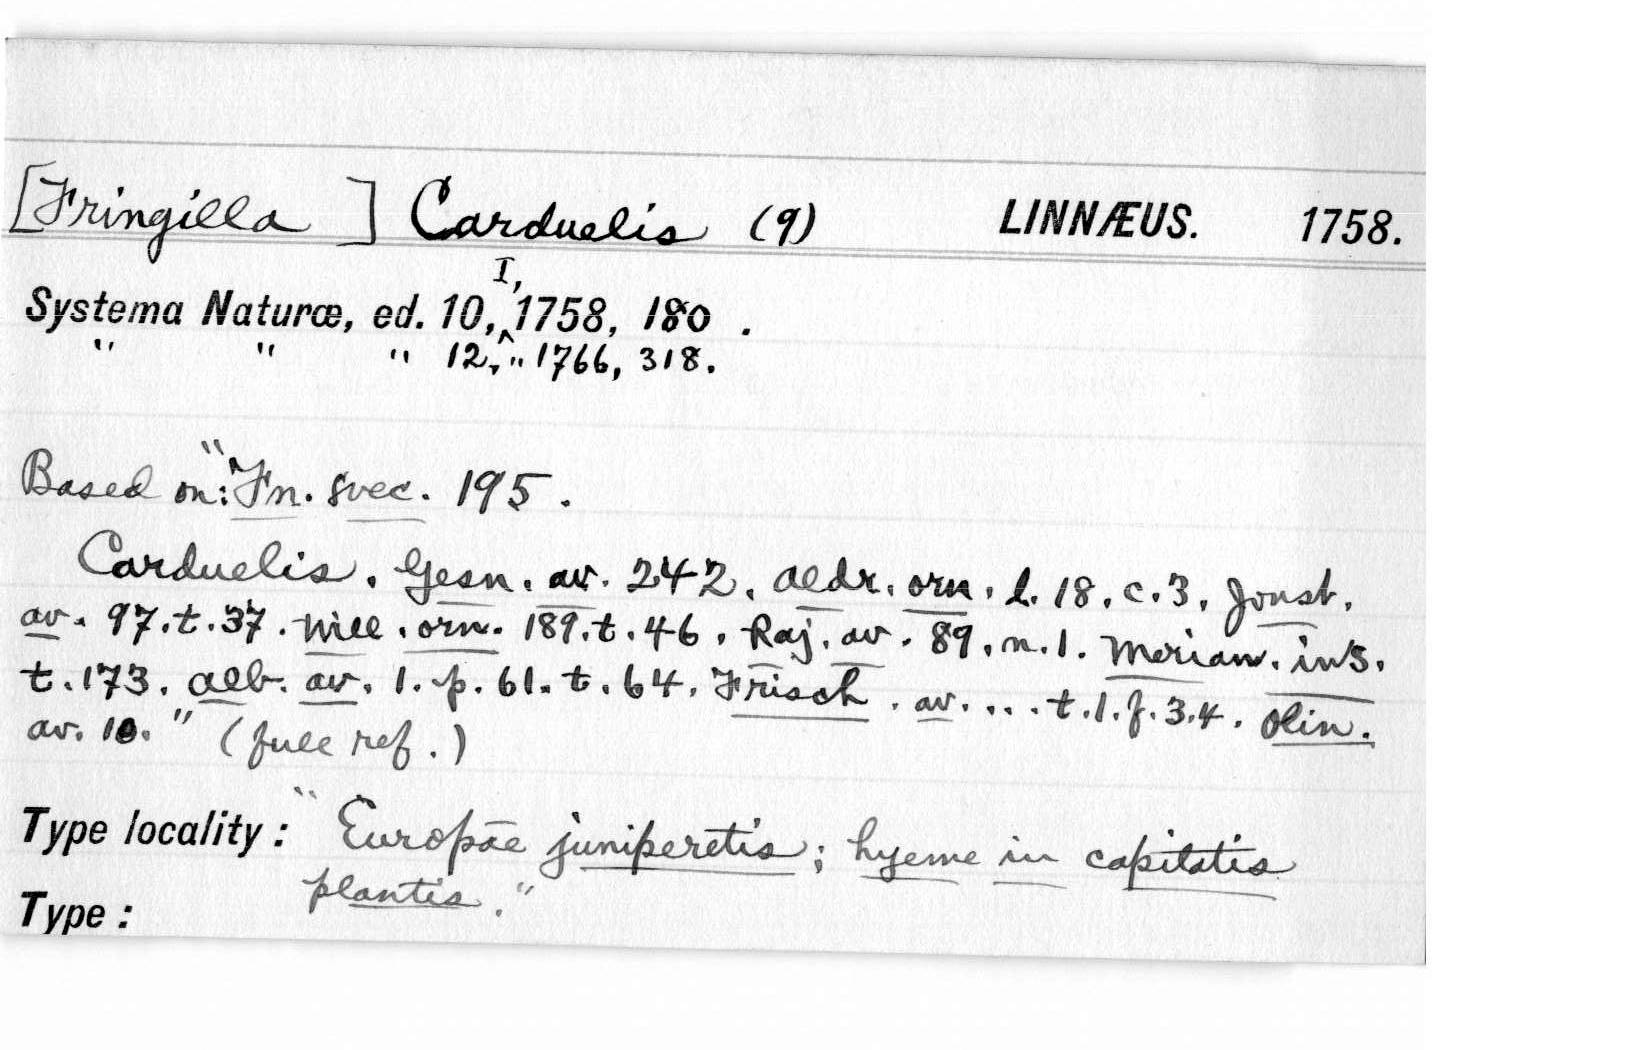 [Fringilla ] Carduelis (9) LINNÆUS. 1758.
Systema Naturæ, ed. 10, I, 1758, 180 .
" " " 12, " 1766, 318.
Based on: "Fn. svec. 195 .
Carduelis. Gesn. av. 242. Aldr. orn. l. 18. c. 3. Jonst.
av. 97. t. 37. Will. orn. 189. t. 46. Raj. av. 89. n. 1. Merian. ins.
t. 173. alb. av. 1. p. 61. t. 64. Frisch. av. ... t. 1. f. 3. 4. Olin.
av. 10." (full ref.)
Type locality: "Europæ juniperetis; hyeme in capitatis
plantis."
Type :